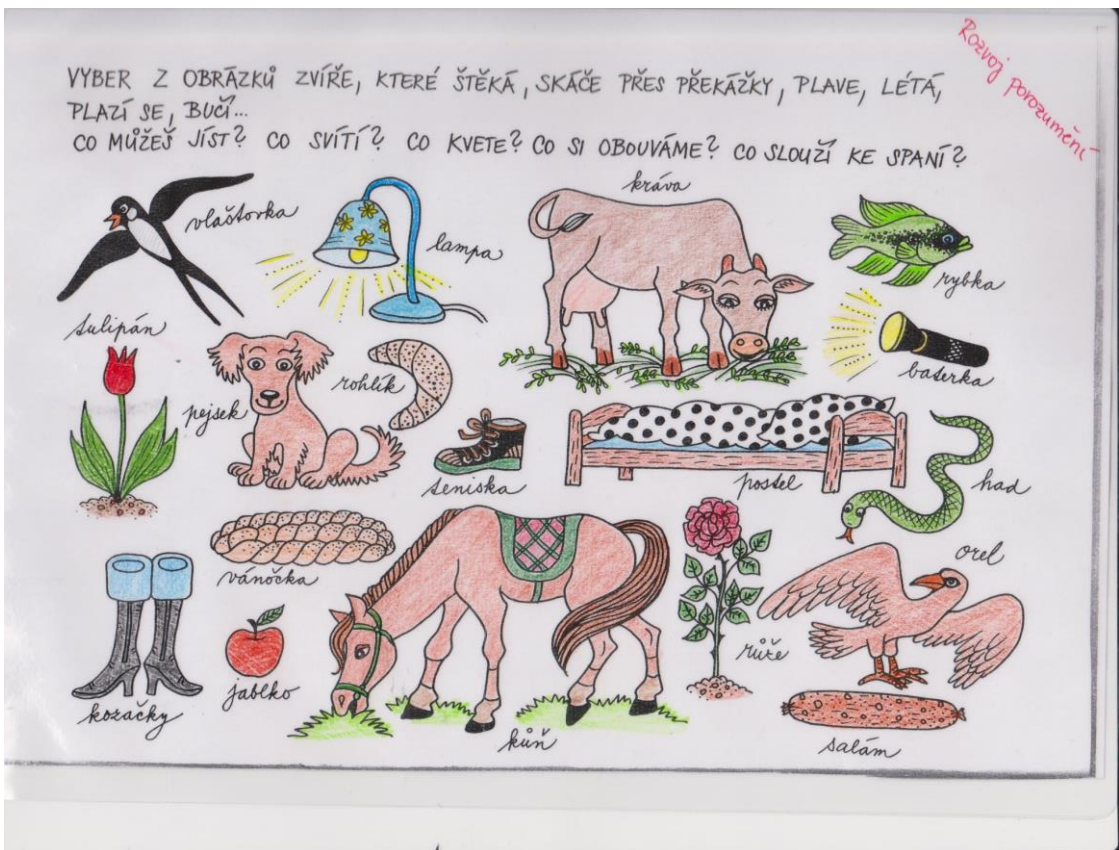 Rozvoj porozumění
VYBER Z OBRÁZKŮ ZVÍŘE, KTERÉ ŠTĚKÁ, SKÁČE PŘES PŘEKÁŽKY, PLAVE, LÉTÁ,
PLAZÍ SE, BUČÍ...
CO MŮŽEŠ JÍST? CO SVÍTÍ? CO KVETE? CO SI OBOUVÁME? CO SLOUŽÍ KE SPANÍ?
vlaštovka
lampa
kráva
rybka
tulipán
pejsek
rohlík
baterka
teniska
postel
had
vánočka
orel
kozačky
jablko
kůň
růže
salám